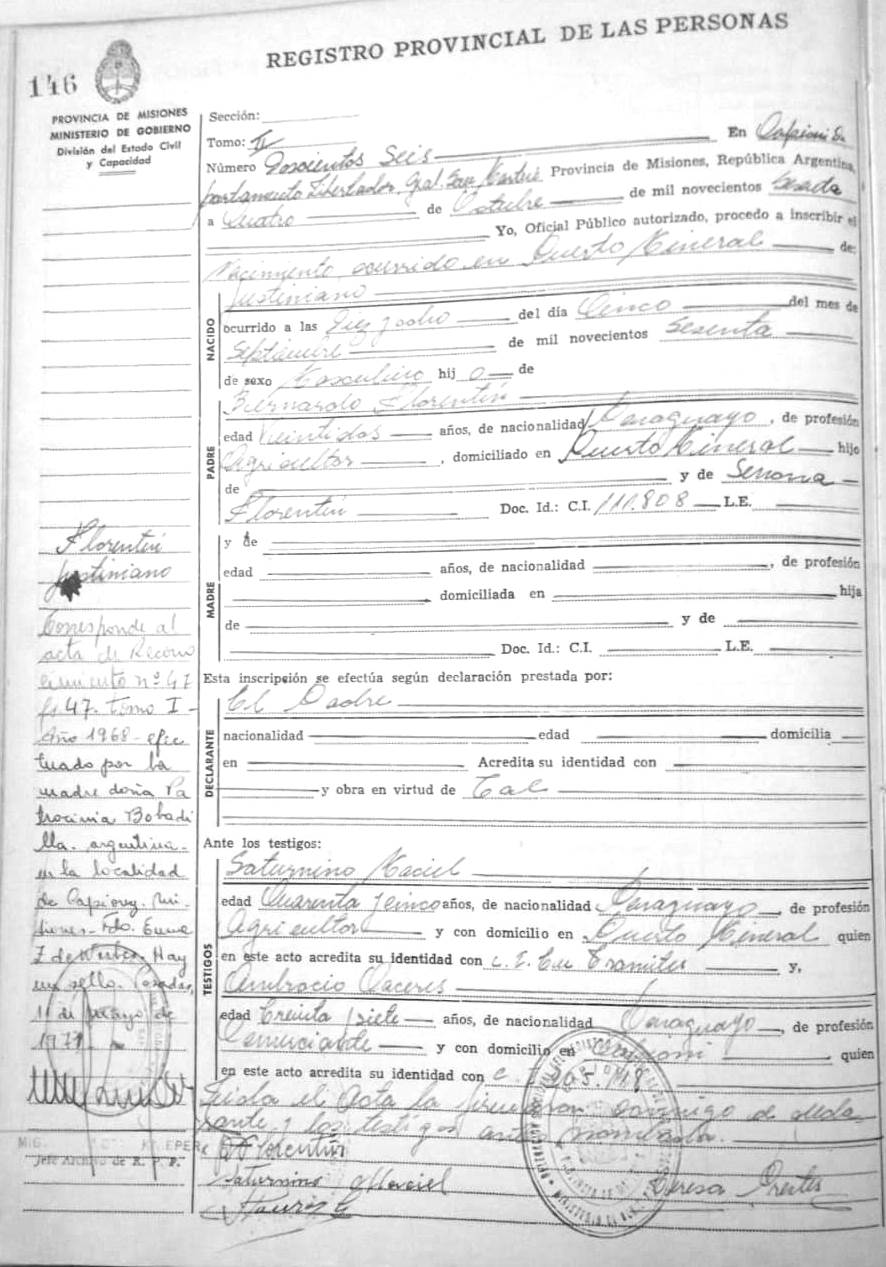 REGISTRO PROVINCIAL DE LAS PERSONAS
146
PROVINCIA DE MISIONES
MINISTERIO DE GOBIERNO
División del Estado Civil
y Capacidad
Sección:
Tomo: II En Capioví De
Número Doscientos Seis
partamento Libertador Gral. San Martín Provincia de Misiones, República Argentina,
a Cuatro de Octubre de mil novecientos Sesenta
Yo, Oficial Público autorizado, procedo a inscribir el
Nacimiento ocurrido en Puerto Mineral de:
NACIDO
Justiniano
ocurrido a las Diez y ocho del día Cinco del mes de
Septiembre de mil novecientos Sesenta
de sexo Masculino hijo de
PADRE
Bernardo Florentín
edad Veintidos años, de nacionalidad Paraguayo, de profesión
Agricultor, domiciliado en Puerto Mineral hijo
de y de
Florentín Doc. Id.: C.I. 111.808 L.E.
MADRE
y de
edad años, de nacionalidad , de profesión
domiciliada en hija
de y de
Doc. Id.: C.I. L.E.
Esta inscripción se efectúa según declaración prestada por:
DECLARANTE
El Padre
nacionalidad edad domicilia
en Acredita su identidad con
y obra en virtud de Tal
Ante los testigos:
TESTIGOS
Saturnino Maciel
edad Cuarenta y cinco años, de nacionalidad Paraguayo, de profesión
Agricultor y con domicilio en Puerto Mineral quien
en este acto acredita su identidad con C. I. En Tramites y,
Ambrocio Caceres
edad Treinta y siete años, de nacionalidad Paraguayo, de profesión
Comerciante y con domicilio en Capioví quien
en este acto acredita su identidad con C.
Leida el Acta la firmaron conmigo
y los testigos ante nombrados.
Florentín
Saturnino Maciel Teresa
Florentín
Justiniano
Corresponde al
acta de Recono
cimiento nº 47
fs 47. Tomo I -
Año 1968 - efec
tuado por la
madre doña Pa
trocinia Bobadi
lla. argentina -
en la localidad
de Capiovy. Mi
siones - Fdo. Emma
Z de Hay
un sello. Posadas,
11 de Mayo de
197
Jefe Archivo de R. P. P.